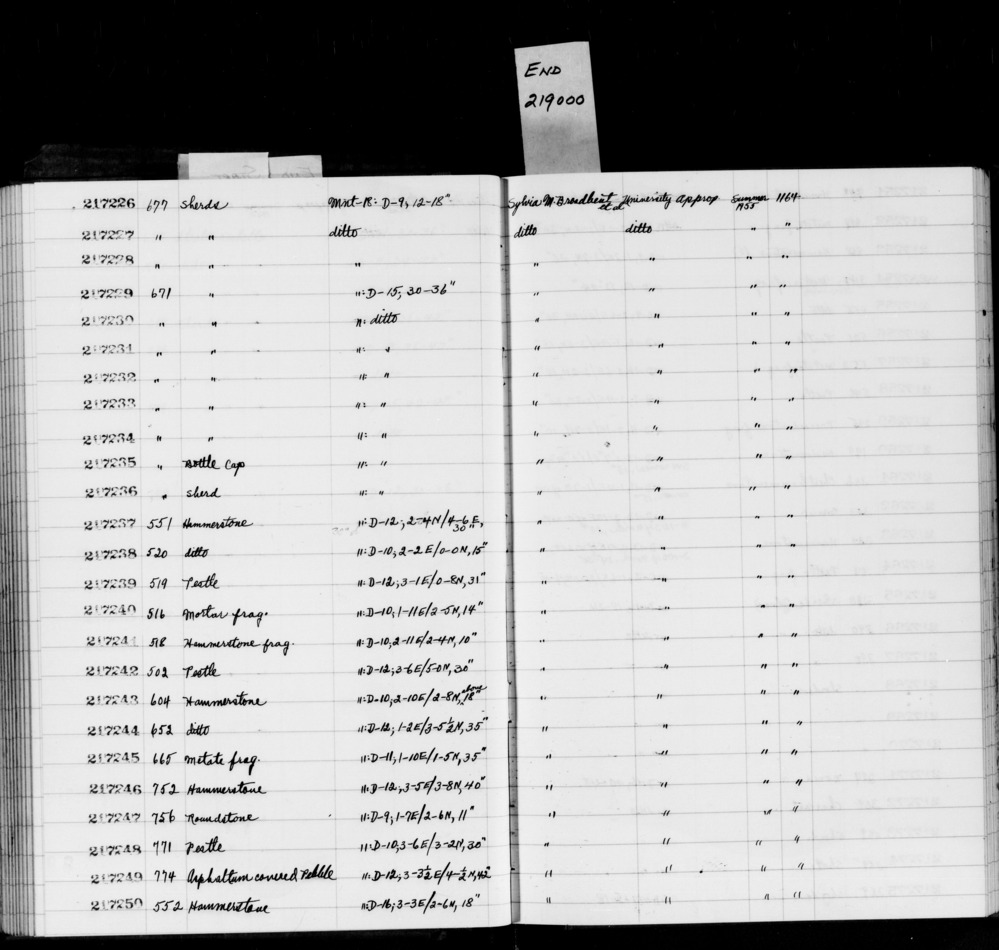 END
219000
217226 677 Sherds Mnt-18: D-9; 12-18" Sylvia M. Broadbent et al University Approp Summer 1955 1164
217227 " " ditto ditto ditto " "
217228 " " " " " " "
217229 671 " ": D-15; 30-36" " " " "
217230 " " ": ditto " " " "
217231 " " ": " " " " "
217232 " " ": " " " " "
217233 " " ": " " " " "
217234 " " ": " " " " "
217235 " Bottle Cap ": " " " " "
217236 " Sherd ": " " " " "
217237 551 Hammerstone ": D-12; 2-4N/4-6E, 30" " " " "
217238 520 ditto ": D-10; 2-2E/0-0N, 15" " " " "
217239 519 Pestle ": D-12; 3-1E/0-8N, 31" " " " "
217240 516 Mortar frag. ": D-10; 1-11E/2-5N, 14" " " " "
217241 518 Hammerstone frag. ": D-10; 2-11E/2-4N, 10" " " " "
217242 502 Pestle ": D-12; 3-6E/5-0N, 30" " " " "
217243 604 Hammerstone ": D-10; 2-10E/2-8N, above 18" " " " "
217244 652 ditto ": D-12; 1-2E/3-5½N, 35" " " " "
217245 665 Metate frag. ": D-11; 1-10E/1-5N, 35" " " " "
217246 752 Hammerstone ": D-12; 3-5E/3-8N, 40" " " " "
217247 756 Roundstone ": D-9; 1-7E/2-6N, 11" " " " "
217248 771 Pestle ": D-10; 3-6E/3-2N, 30" " " " "
217249 774 Asphaltum covered Pebble ": D-12; 3-3½E/4-½N, 42" " " " "
217250 552 Hammerstone ": D-16; 3-3E/2-6N, 18" " " " "